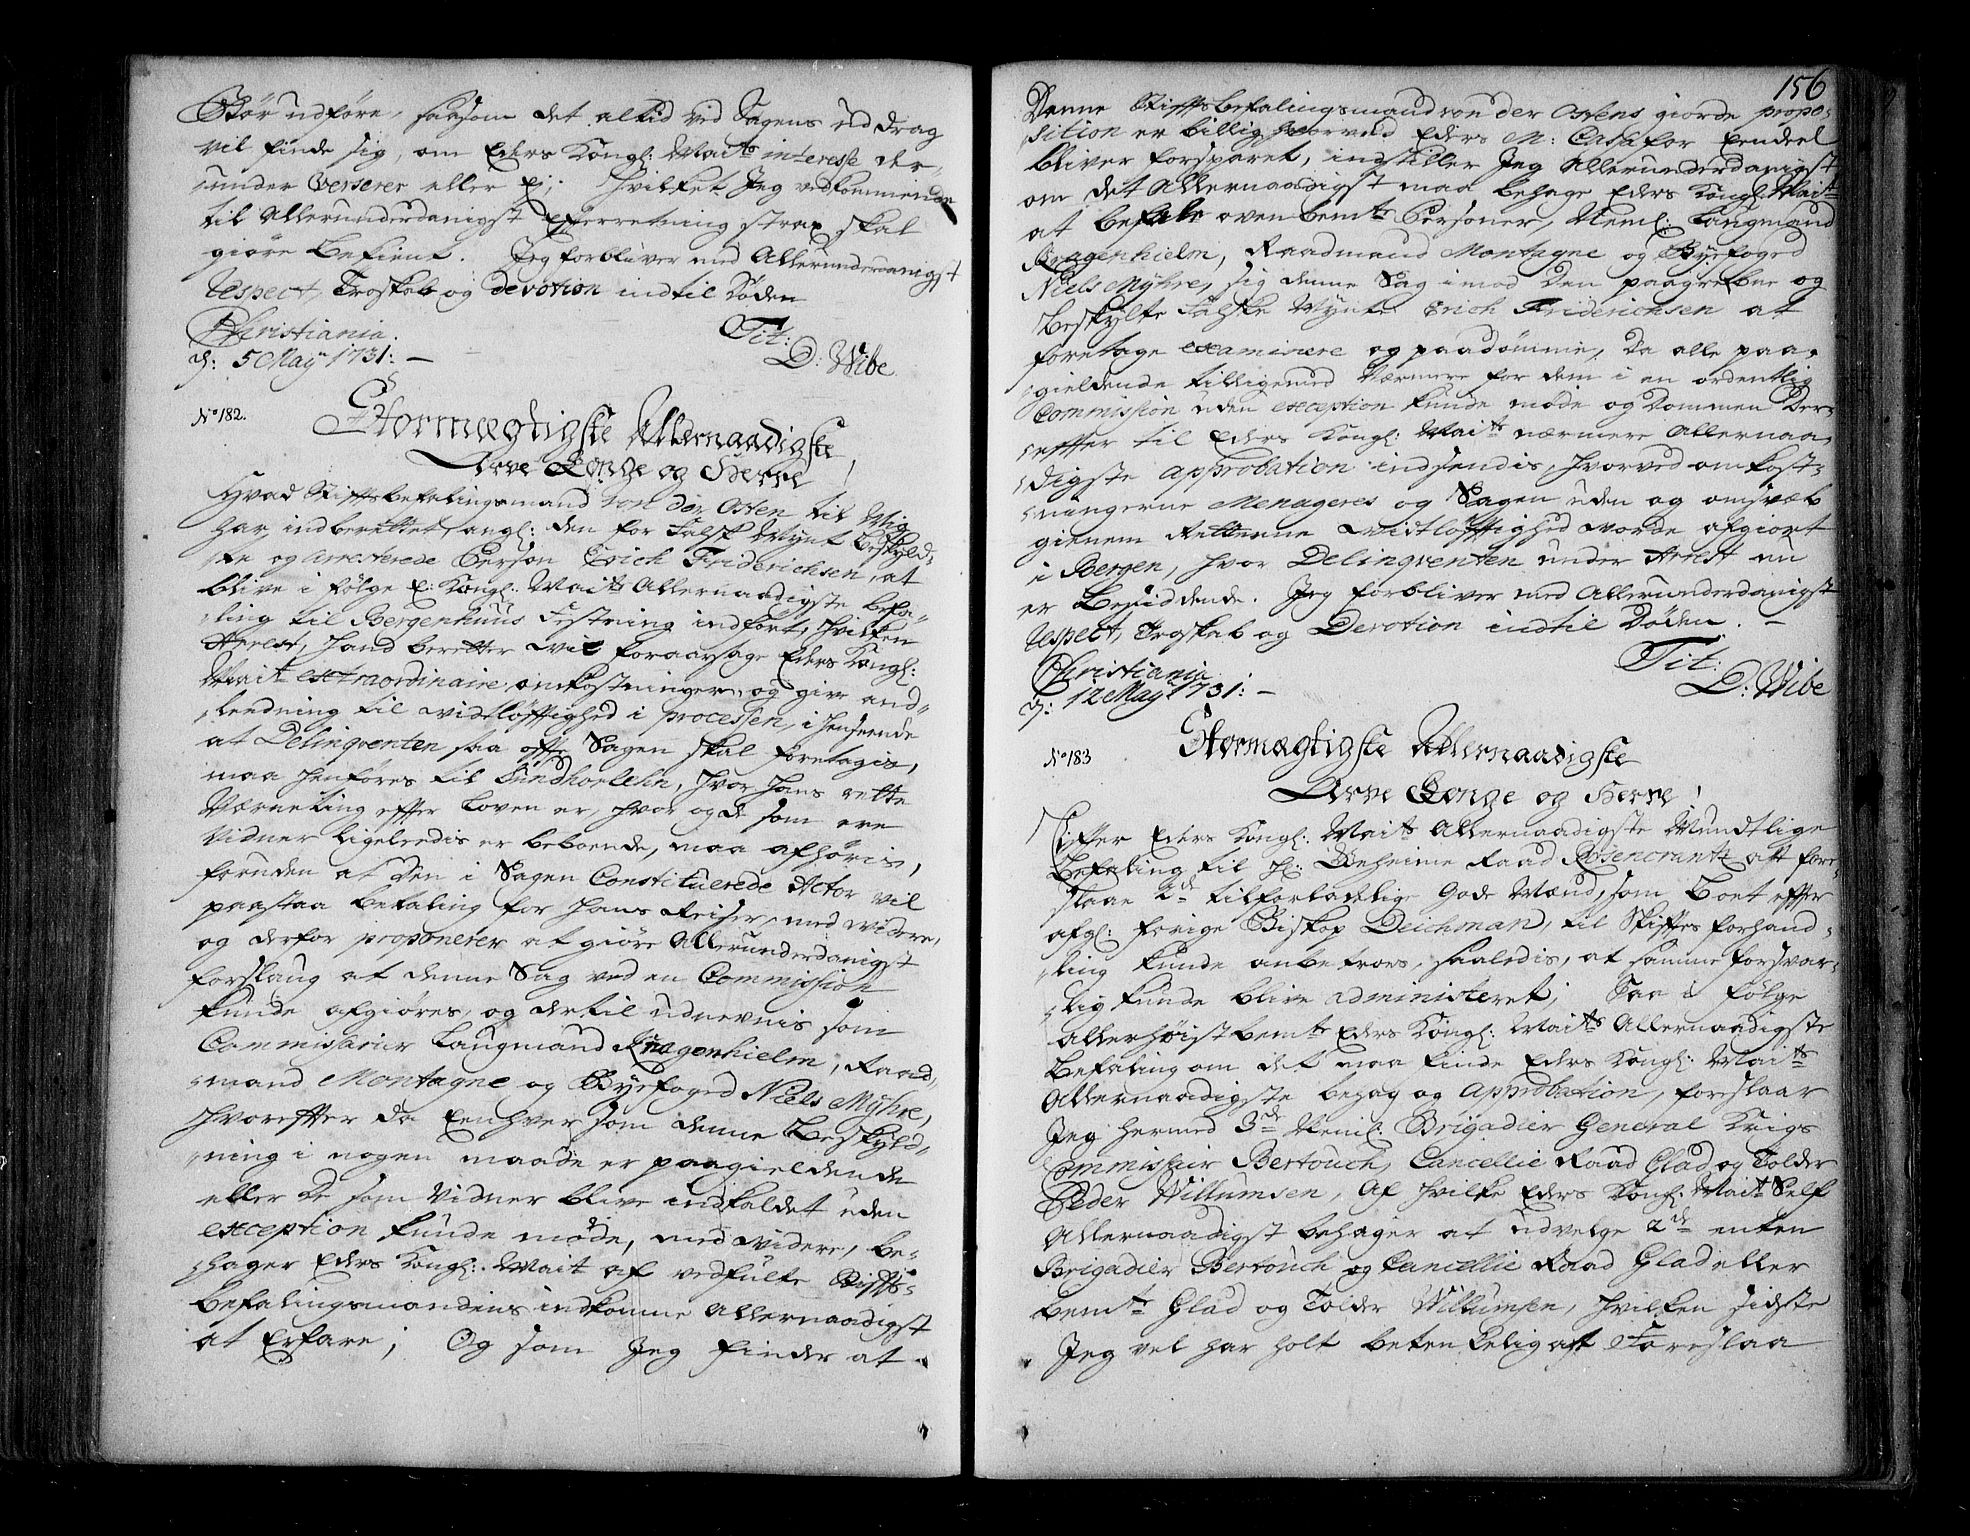 Bør udføre, saasom det altid ved Sagens uddrag
vil finde sig, om Eders Kongl: Maits interesse der-
under Verserer eller Ej; Hvilket Jeg vedkommende
til Allerunderdanigst Efterretning strax skal
giøre bekient. Jeg forbliver med Allerunderdanigst
respect, Troskab og devotion indtil Døden
Christiania
d: 5 May 1731: —
Tit:
D: Wibe
No 182.
Stormægtigste Allernaadigste
Arve Konge og Herre!
Hvad Stiftsbefalingsmand von der Osten til Mig
har indberettet, angl: den for Falsk Mynt beskyld-
te og Arresterede Person Erich Friderichsen, at
blive i følge E: Kongl: Maits Allernaadigste befa-
ling til Bergenhuus Festning indført, hvilken
Arrest, hand beretter vil foraarsage Eders Kongl:
Mait extraordinaire omkostninger, og give and-
ledning til vidtløfftighed i processen, i henseende
at Delinqventen saa offte Sagen skal foretagis,
maa henføres til Sundhorlehn, hvor hans rette
Værneting effter Loven er, hvor og de som ere
Vidner ligeledis er beboende, maa afhøris,
foruden at den i Sagen Constituerede Actor vil
paastaa betaling for hans Reiser, med videre,
og derfor proponerer at giøre Allerunderdanigst
forslaug at denne Sag ved en Commission
kunde afgiøres, og dertil udnevnis som
Commissarier Laugmand Kragenhielm, Raad-
mand Montagne og Byefoged Niels Myhre,
hvoreffter da Eenhver som denne Beskyld-
ning i nogen maade er paagieldende
eller de som Vidner blive indkaldet uden
exception kunde møde, med videre, be-
hager Eders Kongl: Mait af vedfulte Stiffts-
befalingsmandens indkomne Allernaadigst
at Erfare; Og som Jeg finder at
156
Denne Stifftsbefalingsmand von der Ostens giorde propo-
sition er billig hvorved Eders M: Cassa for Eendeel
bliver forsparet, indstiller Jeg Allerunderdanigst
om det Allernaadigst maa behage Eders Kongl: Mait
at befale ovenbemte Personer, Neml: Laugmand
Kragenhielm, Raadmand Montagne og Byefoged
Niels Myhre, sig denne Sag imod Den paagrebne og
beskylte Falske Mynter Erich Friderichsen at
foretage examinere og paadømme, Da alle paa-
gieldende tilligemed Værmere for dem i en ordentlig
Commission uden exception kunde møde og Dommen Der-
effter til Eders Kongl: Maits nærmere Allernaa-
digste approbation indsendis, hvorved omkost-
ningerne Menageres og Sagen uden og omsvøb
gienem Retterne vidtløfftighed vorde afgiort
i Bergen, hvor Delinqventen under Arrest nu
er befiddende. Jeg forbliver med Allerunderdanigst
respect, Troskab og Devotion indtil Døden. —
Christiania
d: 12 May 1731: —
Tit:
D: Wibe
No 183
Stormægtigste Allernaadigste
Arve Konge og Herre!
Effter Eders Kongl: Maits Allernaadigste Mundtlige
Befaling til H: Geheime Raad Rosencrantz att fore-
slaae 2de tilforladelige Gode Mænd, som Boet effter
afgl: forige Biskop Deichman, til Skifftes forhand-
ling kunde anbetroes, saaledis, at samme forsvar-
lig kunde blive administeret; Saa i Følge
allerhøistbemte Eders Kongl: Maits Allernaadigste
Befaling om det maa finde Eders Kongl: Maits
Allernaadigste behag og approbation, foreslaar
Jeg hermed 3de Neml: Brigadier General Krigs
Commissair Bertouch, Cancellie Raad Glad og Tolder
Peder Willumsen, af hvilke Eders Kongl: Mait Self
Allernaadigst behager at udvelge 2de enten
Brigadier Bertouch og Cancellie Raad Glad eller
bemte Glad og Tolder Willumsen, hvilken sidste
Jeg vel har holt betenkelig att Foreslaa